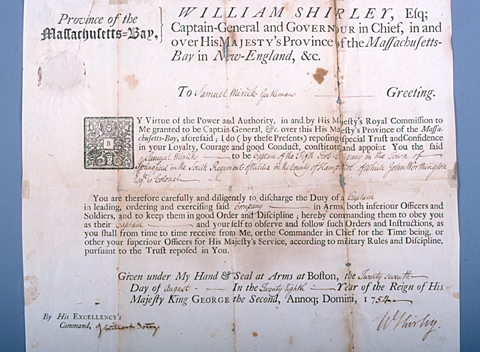 Province of the
Massachusetts-Bay,
WILLIAM SHIRLEY, Esq;
Captain-General and GOVERNOUR in Chief, in and
over His MAJESTY's Province of the Massachusetts-
Bay in New-England, &c.
To Samuel Mirick Gentleman Greeting.
BY Virtue of the Power and Authority, in and by His Majesty's Royal Commission to
Me granted to be Captain General, &c. over this His Majesty's Province of the Massa-
chusetts-Bay, aforesaid; I do (by these Presents) reposing special Trust and Confidence
in your Loyalty, Courage and good Conduct, constitute and appoint You the said
Samuel Mirick to be Captain of the Fifth Foot Company in the Town of
Springfield in the South Regiment of Militia in the County of Hampshire of which John Worthington
Esqr. is Colonel
You are therefore carefully and diligently to discharge the Duty of a Captain
in leading, ordering and exercising said Company in Arms, both inferiour Officers and
Soldiers, and to keep them in good Order and Discipline; hereby commanding them to obey you
as their Captain and yourself to observe and follow such Orders and Instructions, as
you shall from time to time receive from Me, or the Commander in Chief for the Time being, or
other your superiour Officers for His Majesty's Service, according to military Rules and Discipline,
pursuant to the Trust reposed in You.
Given under My Hand & Seal at Arms at BOSTON, the Twenty seventh
Day of August In the Twenty Eighth Year of the Reign of His
Majesty King GEORGE the Second, Annoq; Domini, 1754
By HIS EXCELLENCY's
Command,
W Shirley